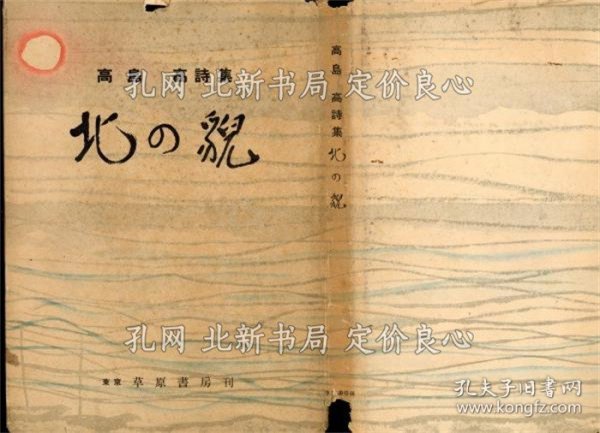 高島 高詩集
北の貌
東京 草原書房刊
高島 高詩集 北の貌
孔网 北新书局 定价良心
孔网 北新书局 定价良心
孔网 北新书局 定价良心
孔夫子旧书网
www.kongfz.com